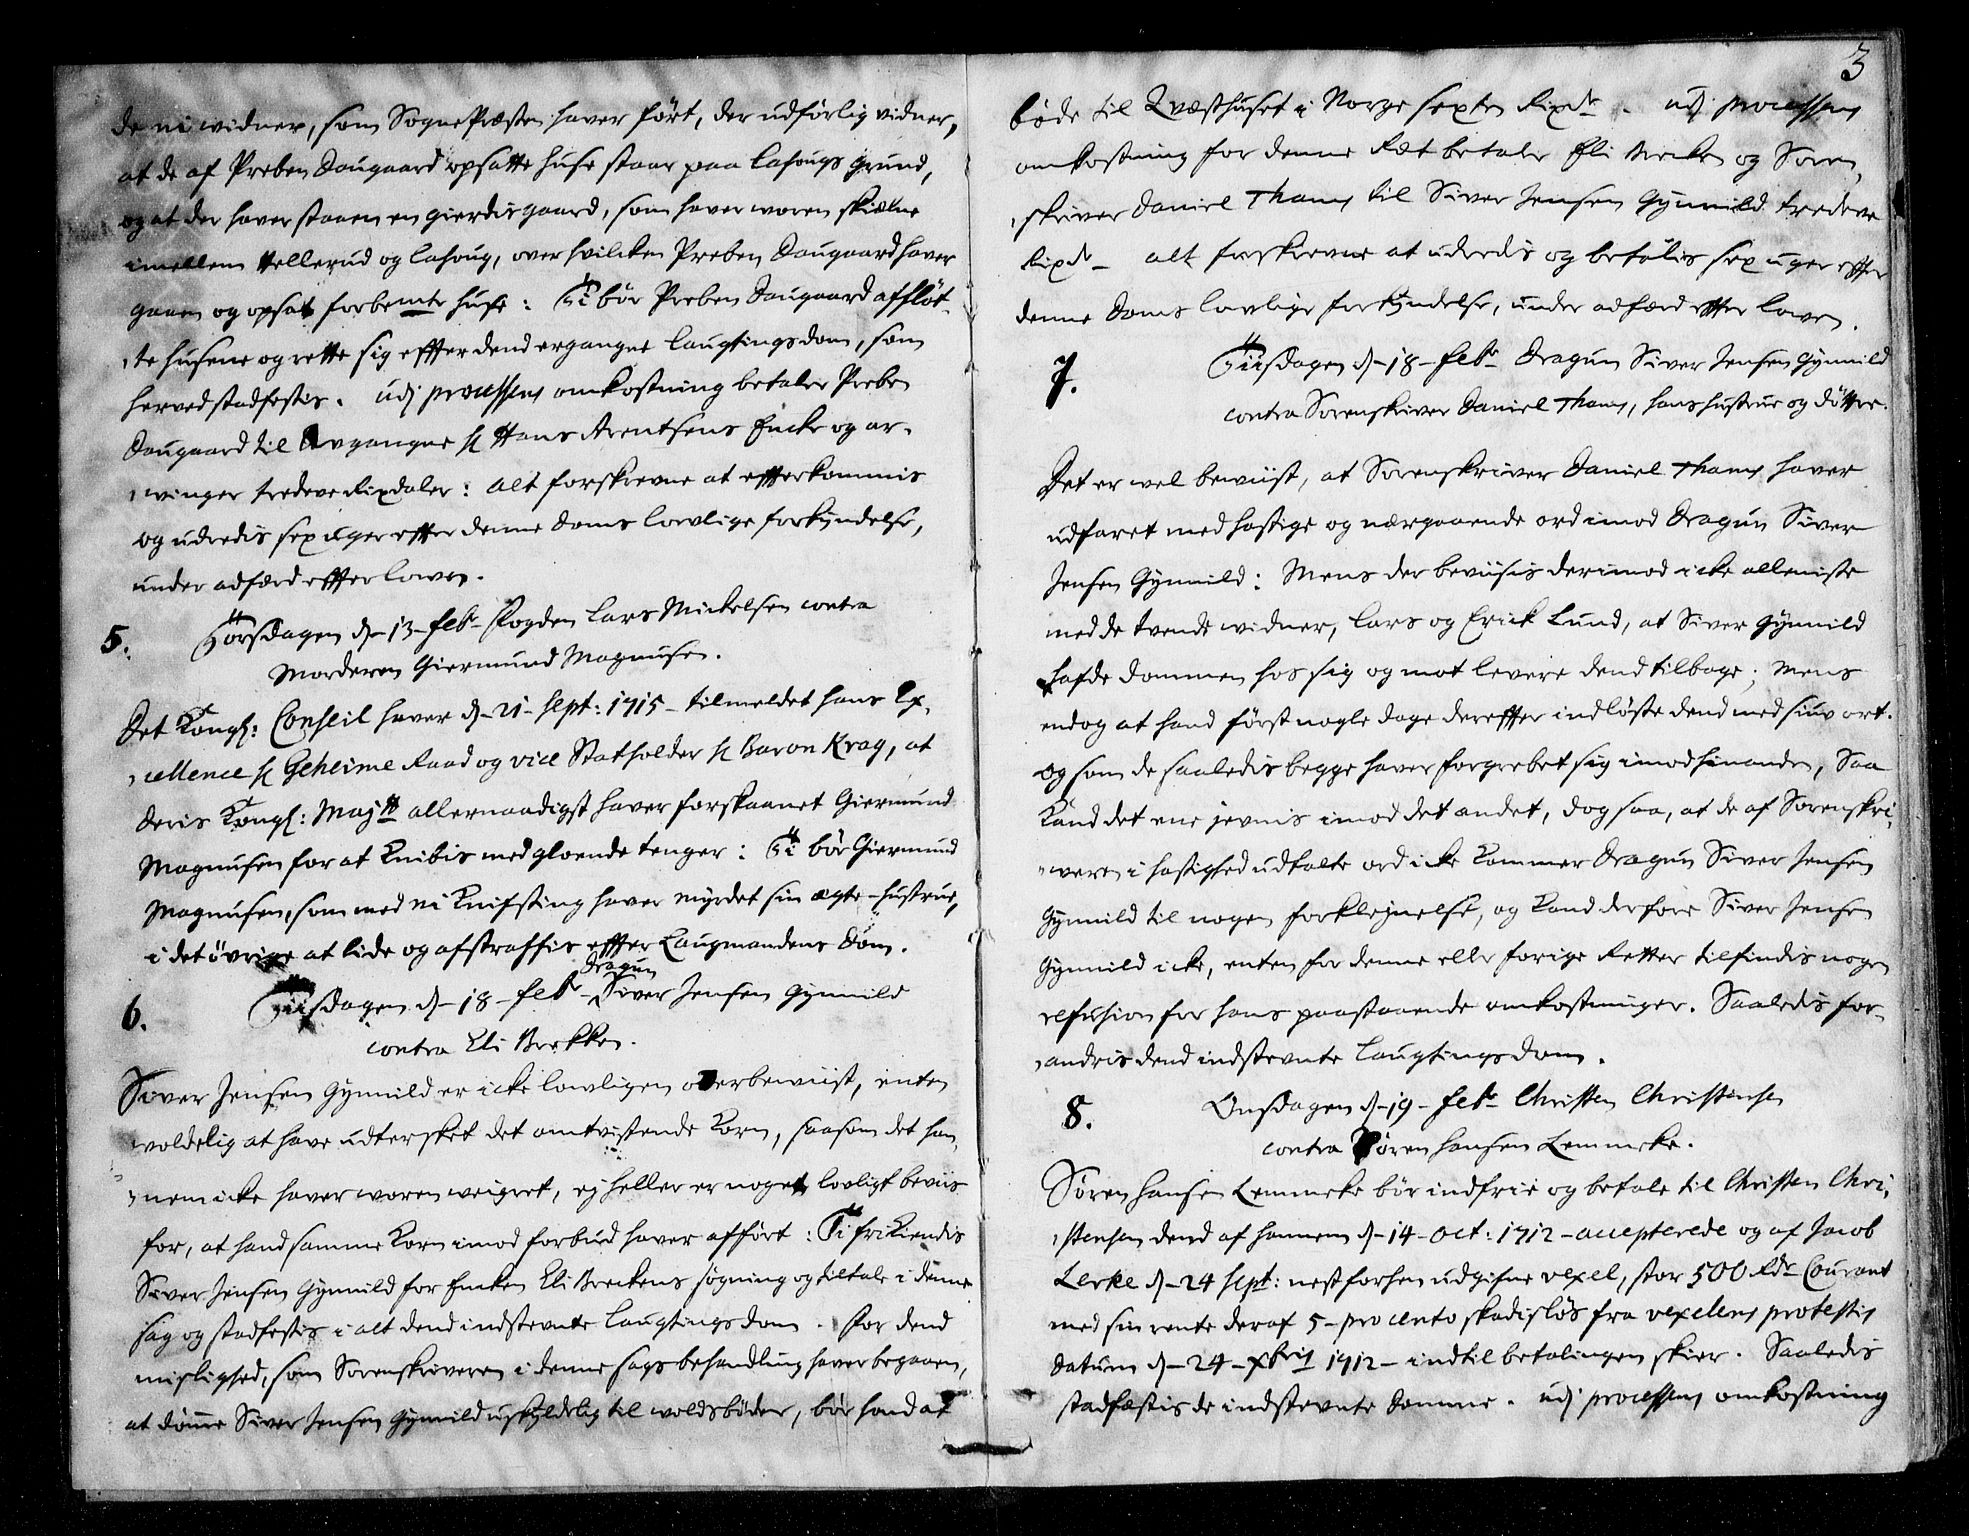 de ni widner, som SognePræsten haver ført, der udførlig vidner,
at de af Preben Daugaard opsatte huse staar paa Lahougs grund,
og at der haver staaen en gierdisgaard, som haver woren skielne
imellem Hellerud og Lahoug, over hvilcken Preben Daugaard haver
gaaen og opsat forbemte huse: Ti bør Preben Daugaard affløt-
te husene og rette sig effter dend ergangne Laugtingsdom, som
herved stadfestis. udj processens omkostning betaler Preben
Daugaard til Avgangne hr Hans Arentsens Encke og ar-
winger tredeve Rixdaler: alt forskrevne at effterkommis
og udredis sex uger effter denne doms lovlige forkyndelse,
under adfærd effter loven.
5. Torsdagen d. 13 feb. Fogden Lars Mickelsen contra
Morderen Giermund Magnusen.
Det Kongl: Conseil haver d. 21 sept: 1715 tilmeldet hans Ex-
cellence hr Geheime Raad og vice Statholder hr Baron Krag, at
deris Kongl: Maj.tt allernaadigst haver forskaanet Giermund
Magnusen for at knibis med gloende tenger: Ti bør Giermund
Magnusen, som med ni knifsting haver myrdet sin ægte-hustrue,
i det øvrige at lide og afstraffis effter Laugmandens dom.
6. Tiisdagen d. 18 feb. dragun Siver Jensen Gynnild
contra Eli Brekken.
Siver Jensen Gynnild er icke lowligen overbewiist, enten
woldelig at have udtersket det omtvistende korn, saasom det han-
nem icke haver woren weigret, ej heller er noget lovligt beviis
for, at hand samme korn imod forbud haver afført: Ti frikiendis
Siver Jensen Gynnild for Encken Eli Breckens søgning og tiltale i denne
sag og stadfestis i alt dend indstevnte Laugtingsdom. For dend
mislighed, som Sorenskriveren i denne sags behandling haver begaaen,
at dømme Siver Jensen Gynnild uskyldelig til woldsbøder, bør hand at
3
bøde til Qvæsthuset i Norge sexten Rixdr. udj processens
omkostning for denne Ret betaler Eli Brecken og Soren-
skriver Daniel Thams til Siver Jensen Gynnild tredeve
Rixdr alt forskrevne at udredis og betalis sex uger effter
denne doms lovlige forkyndelse, under adfærd effter loven.
7. Tiisdagen d. 18 feb. Dragun Siver Jensen Gynnild
contra Sorenskriver Daniel Thams, hans hustrue og døttre.
Det er wel bewiist, at Sorenskriver Daniel Thams haver
udfaret med hastige og nærgaaende ord imod dragun Siver
Jensen Gynnild: Mens der bevisis derimod icke alleniste
med de tvende widner, Lars og Erick Lund, at Siver Gynnild
hafde dommen hos sig og mot levere dend tilbage; mens
endog at hand først nogle dage dereffter indløste dend med siuv ort.
og som de saaledis begge haver forgrebet sig imod hinanden, Saa
kand det ene jevnis imod det andet, dog saa, at de af Sorenskri-
weren i hastighed udtalte ord icke kommer dragun Siver Jensen
Gynnild til nogen forklejnelse, og kand derfore Siver Jensen
Gynnild icke, enten for denne eller forige Retter tilfindis nogen
refusion for hans paastaaende omkostninger. Saaledis for-
andris dend indstevnte Laugtingsdom.
8. Onsdagen d. 19 feb. Christen Christensen
contra Søren Hansen Lemmeke.
Søren Hansen Lemmeke bør indfrie og betale til Christen Chri-
stensen dend af hannem d. 14 oct: 1712 accepterede og af Jacob
Lerke d. 24 sept: nest forhen udgifne vexel, stor 500 Rdr Courant
med sin rente deraf 5 pro cento skadisløs fra vexelens protestis
datum d. 24 xbris 1712 indtil betalingen skier. Saaledis
stadfæstis de indstevnte domme. udj processens omkostning